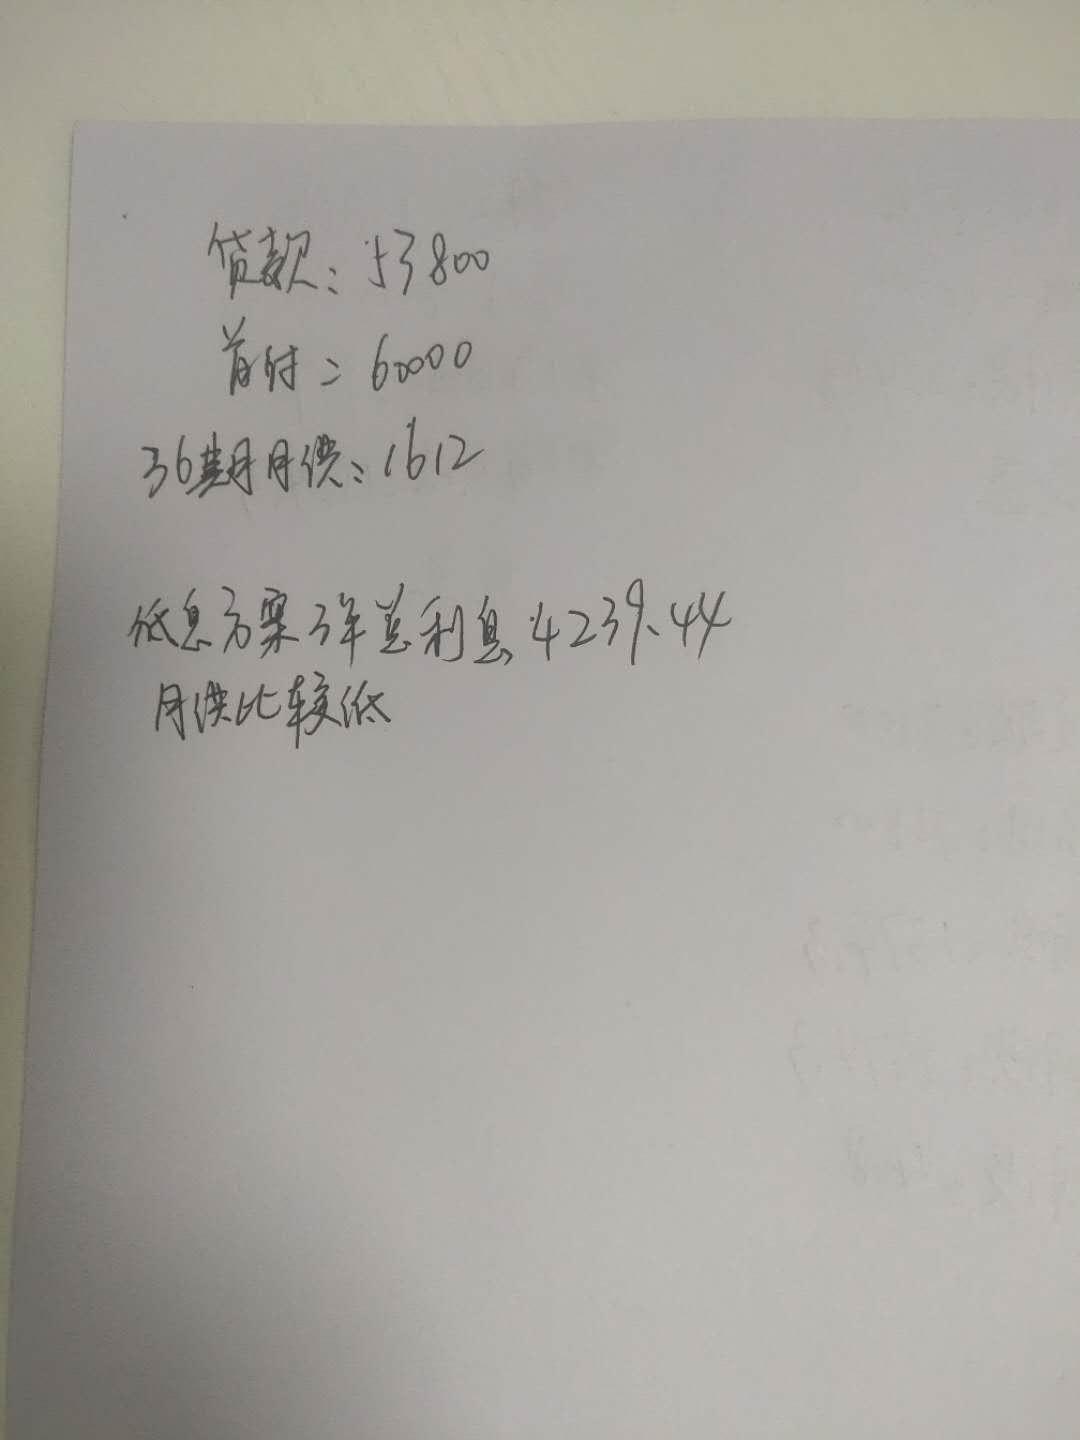 贷款：53800
首付：60000
36期月供：1612
低息方案3年总利息4239.44
月供比较低